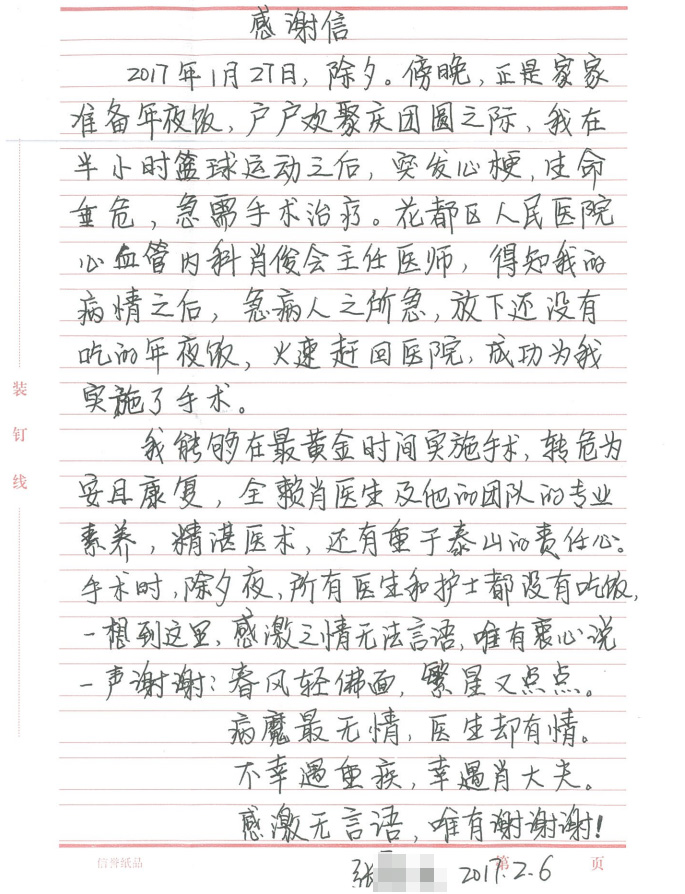 感谢信
2017年1月27日，除夕。傍晚，正是家家
准备年夜饭，户户欢聚庆团圆之际，我在
半小时篮球运动之后，突发心梗，生命
垂危，急需手术治疗。花都区人民医院
心血管内科肖俊会主任医师，得知我的
病情之后，急病人之所急，放下还没有
吃的年夜饭，火速赶回医院，成功为我
实施了手术。
我能够在最黄金时间实施手术，转危为
安且康复，全赖肖医生及他的团队的专业
素养，精湛医术，还有重于泰山的责任心。
手术时，除夕夜，所有医生和护士都没有吃饭，
一想到这里，感激之情无法言语，唯有衷心说
一声谢谢：春风轻佛面，繁星又点点。
病魔最无情，医生却有情。
不幸遇重疾，幸遇肖大夫。
感激无言语，唯有谢谢谢！
张 2017.2.6
装
钉
线
信誉纸品
第 页